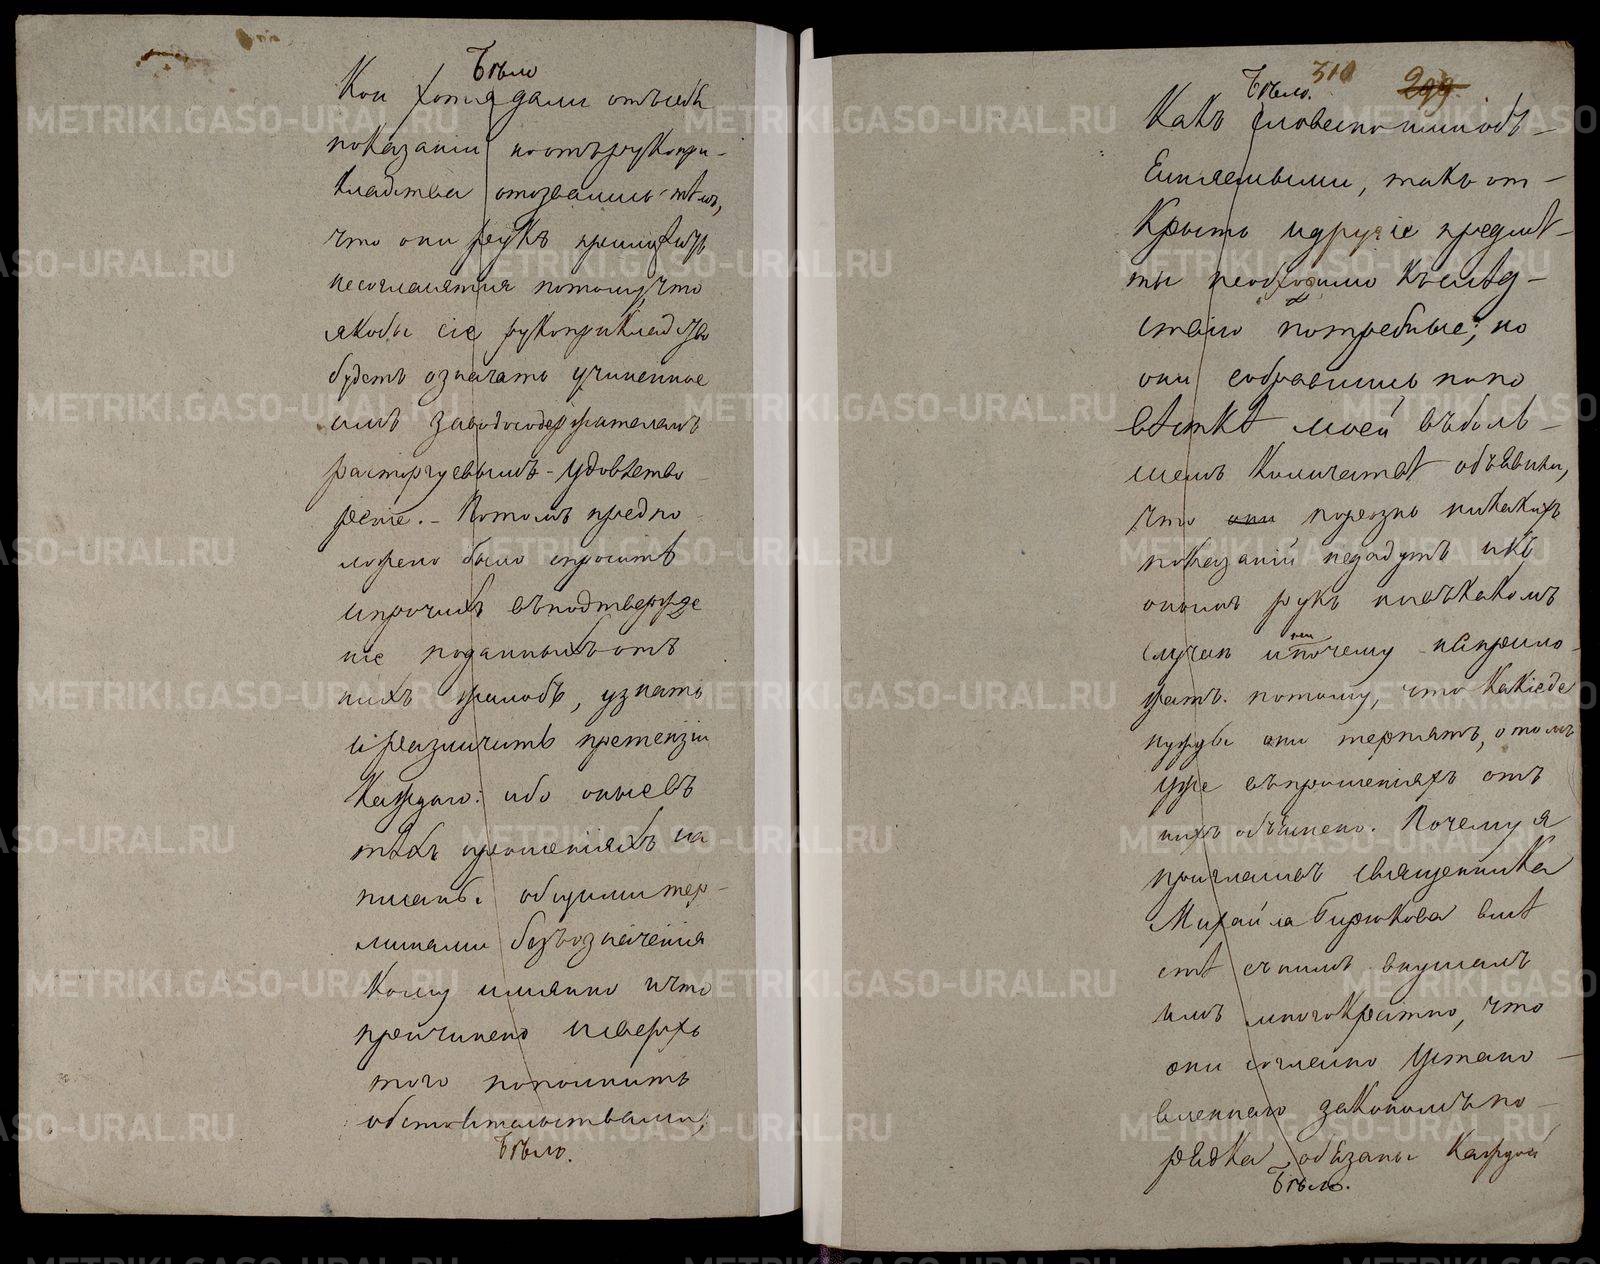 Бѣло
Кои хотя дали отъ себя
показании но отъ рукопри-
кладства отозвались тѣмъ,
что они рукъ приложить
несоглашаются потому, что
якобы сіе рукоприкладство
будетъ означать учиненное
имъ заводосодержателемъ
расторгуевымъ - удовлетво
реніе. - Потомъ предпо
ложено было спросить
ипрочихъ въ подтвержде
ніе поданныхъ отъ
нихъ жалобъ, узнать
и различить претензіи
каждаго: ибо оные въ
тѣхъ прошеніяхъ на
писаны общими тер-
минами безъозначенія
кому имянно и что
причинено и сверхъ
того пополнить
обстоятельствами,
Бѣло.
310
299
Бѣло.
Какъ словесно ими объ-
Емлемыми, такъ от-
крыть и другіе предмѣ-
ты необходимо къ слѣд-
ствію потребные; но
они собравшись по по
вѣсткѣ моей въ боль-
шемъ количествѣ объявили,
что они порознь никакихъ
показаній недадутъ и къ
онымъ рукъ ни въ какомъ
случаѣ и ни почему не прило-
жатъ. потому, что какіе де
нужды они терпятъ, о томъ
уже въ прошеніяхъ отъ
нихъ объяснено. Почему я
пригласивъ священника
Михайла Бирюкова вмѣ
стѣ съ нимъ внушалъ
имъ многократно, что
они согласно устано-
вленнаго закономъ по-
рядка обязаны каждой
Бѣло.
METRIKI.GASO-URAL.RU